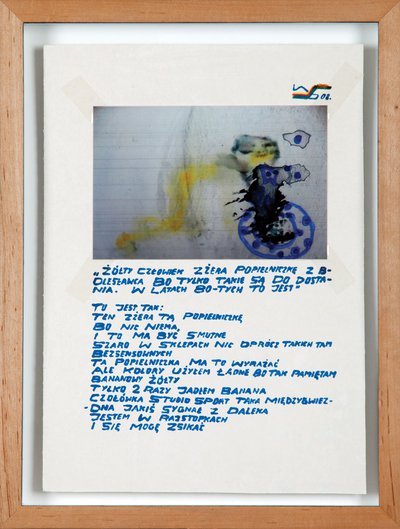 08.
„ŻÓŁTY CZŁOWIEK ZŻERA POPIELNICZKĘ Z B-
OLESŁAWCA BO TYLKO TAKIE SĄ DO DOSTA-
NIA. W LATACH 80-TYCH TO JEST"
TU JEST TAK:
TEN ZŻERA TĄ POPIELNICZKĘ
BO NIC NIEMA,
I TO MA BYĆ SMUTNE
SZARO W SKLEPACH NIC OPRÓCZ TAKICH TAM
BEZSENSOWNYCH
TA POPIELNICZKA MA TO WYRAŻAĆ
ALE KOLORY UŻYŁEM ŁADNE BO TAK PAMIĘTAM
BANANOWY ŻÓŁTY
TYLKO 2 RAZY JADŁEM BANANA
CZOŁÓWKA STUDIO SPORT TAKA MIĘDZYGWIEZ-
-DNA JAKIŚ SYGNAŁ Z DALEKA
JESTEM W RAJSTOPKACH
I SIĘ MOGĘ ZSIKAĆ